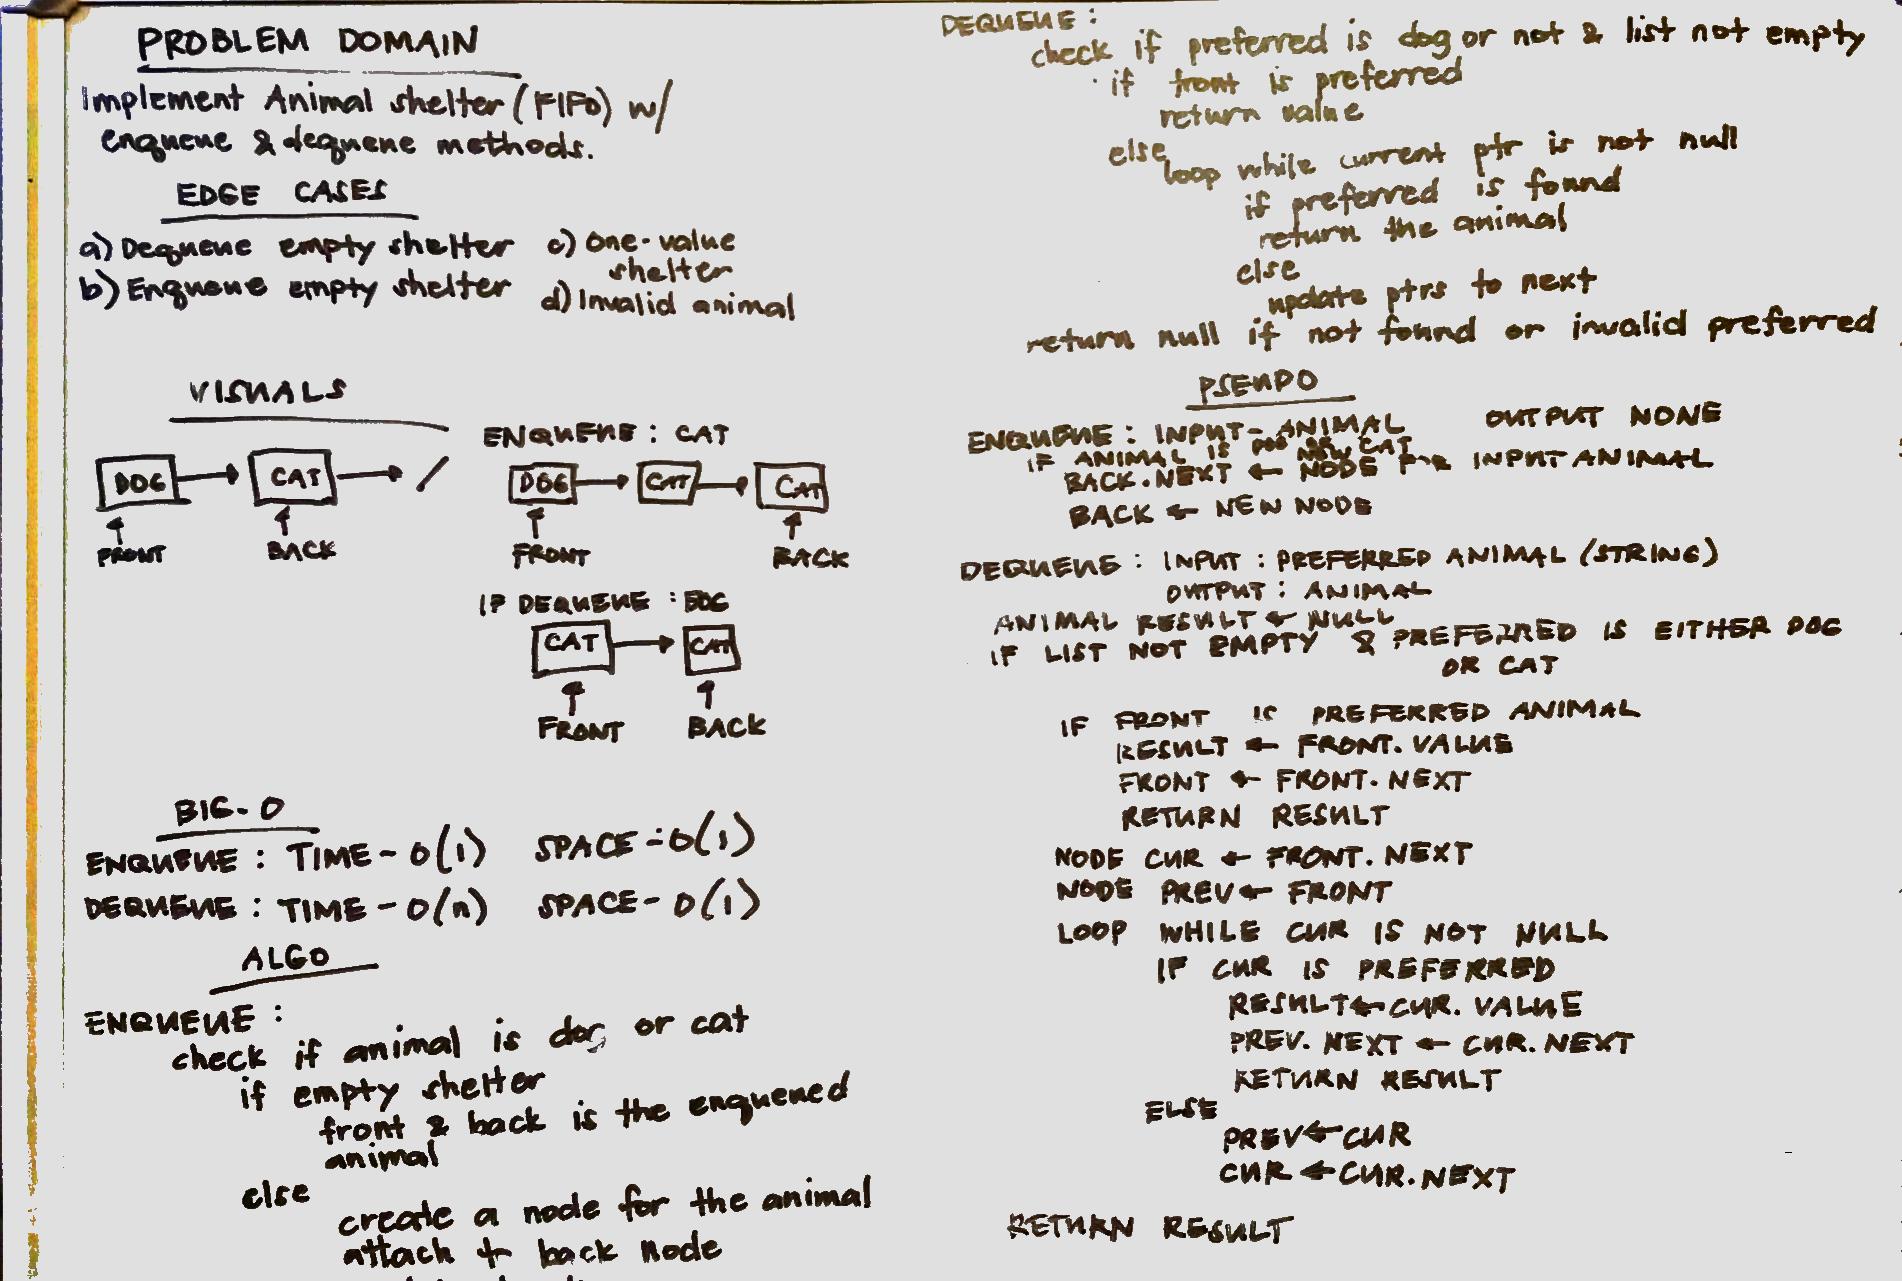 PROBLEM DOMAIN
Implement Animal shelter (FIFO) w/
enqueue & dequeue methods.
EDGE CASES
a) Dequeue empty shelter
b) Enqueue empty shelter
c) One-value
shelter
d) Invalid animal
VISUALS
DOG CAT
FRONT BACK
ENQUEUE : CAT
DOG CAT CAT
FRONT BACK
IF DEQUEUE : DOG
CAT CAT
FRONT BACK
BIG-O
ENQUEUE : TIME - O(1) SPACE - O(1)
DEQUEUE : TIME - O(n) SPACE - O(1)
ALGO
ENQUEUE :
check if animal is dog or cat
if empty shelter
front & back is the enqueued
animal
else
create a node for the animal
attach to back node
DEQUEUE :
check if preferred is dog or not & list not empty
if front is preferred
return value
else
loop while current ptr is not null
if preferred is found
return the animal
else
update ptrs to next
return null if not found or invalid preferred
PSEUDO
ENQUEUE : INPUT - ANIMAL OUTPUT NONE
IF ANIMAL IS DOG OR CAT
BACK.NEXT ← NEW NODE FOR INPUT ANIMAL
BACK ← NEW NODE
DEQUEUE : INPUT : PREFERRED ANIMAL (STRING)
OUTPUT : ANIMAL
ANIMAL RESULT ← NULL
IF LIST NOT EMPTY & PREFERRED IS EITHER DOG
OR CAT
IF FRONT IS PREFERRED ANIMAL
RESULT ← FRONT.VALUE
FRONT ← FRONT.NEXT
RETURN RESULT
NODE CUR ← FRONT.NEXT
NODE PREV ← FRONT
LOOP WHILE CUR IS NOT NULL
IF CUR IS PREFERRED
RESULT ← CUR.VALUE
PREV.NEXT ← CUR.NEXT
RETURN RESULT
ELSE
PREV ← CUR
CUR ← CUR.NEXT
RETURN RESULT